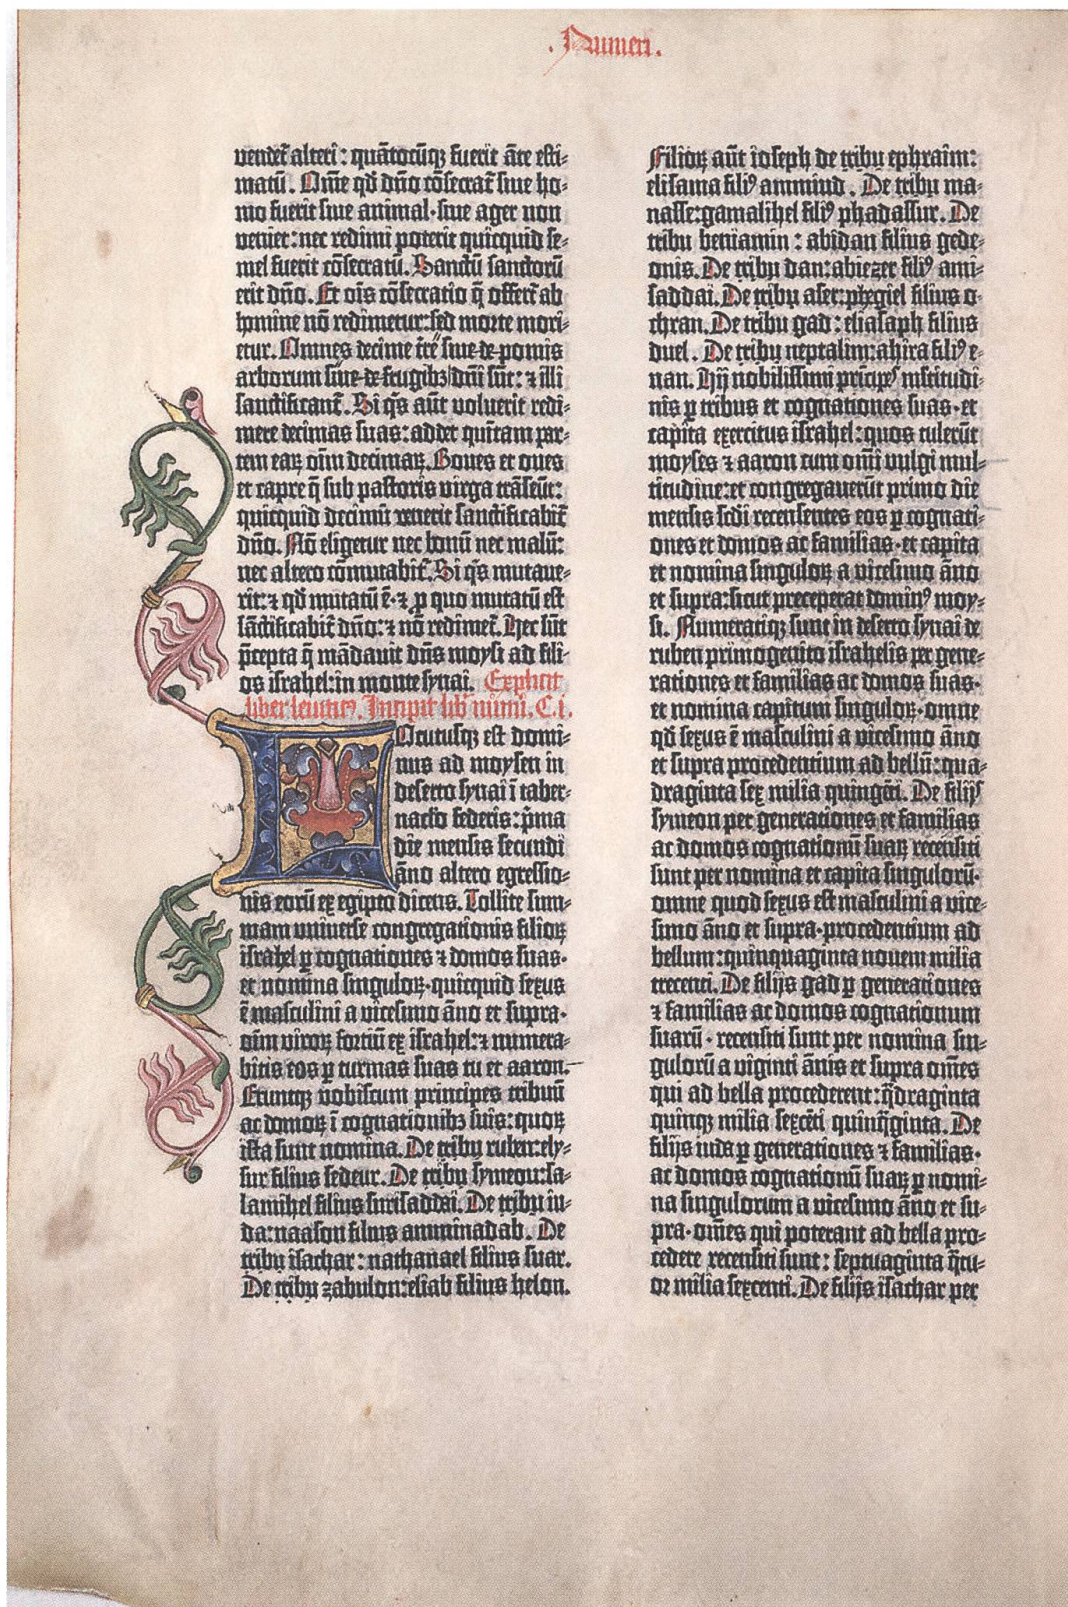 . Numeri .
vendet̄ alteri : quātocūq; fuerit āte esti-
matū . Om̄e qd̄ dn̄o cōsecrat̄ siue ho-
mo fuerit siue animal · siue ager non
veniet : nec redimi poterit quicquid se-
mel fuerit cōsecratū . Sanctū sanctorū
erit dn̄o . Et oīs cōsecratio q̄ offert̄ ab
homine nō redimetur : sed morte mori-
etur . Omnes decime tr̄e siue de pomis
arborum siue de frugibꝫ dn̄i sūt : ⁊ illi
sanctificant̄ . Si q̄s aūt voluerit redi-
mere decimas suas : addet quītam par-
tem eaꝝ . oīm decimaꝝ . Boues et oues
et capre q̄ sub pastoris virga trāseūt :
quicquid decimū venerit sanctificabit̄
dn̄o . Nō eligetur nec bonū nec malū :
nec altero cōmutabit̄ . Si q̄s mutaue-
rit : ⁊ qd̄ mutatū ē · ⁊ ꝓ quo mutatū est
sāctificabit̄ dn̄o : ⁊ nō redimet̄ . Hec sūt
p̄cepta q̄ mādauit dn̄s moysi ad fili-
os israhel : in monte synai . Explicit
liber leuitic⁹ . Incipit lib̄ nūmi . C. i .
LOcutusq; est domi-
nus ad moysen in
deserto synai ī taber-
naclo federis : p̄ma
die mensis secundi
āno altero egressio-
nis eorū ex egipto dicens . Tollite sum-
mam vniuerse congregationis filioꝝ
israhel ꝑ cognationes ⁊ domos suas ·
et nomina singuloꝝ · quicquid sexus
ē masculini a vicesimo āno et supra ·
oīm viroꝝ fortiū ex israhel : ⁊ numera-
bitis eos ꝑ turmas suas tu et aaron .
Eruntq; vobiscum principes tribuū
ac domoꝝ ī cognationibꝫ suis : quoꝝ
ista sunt nomina . De tribu ruben : ely-
sur filius sedeur . De tribu symeon : sa-
lamihel filius surisaddai . De tribu iu-
da : naason filius aminadab . De
tribu isachar : nathanael filius suar .
De tribu zabulon : eliab filius helon .
Filioꝝ aūt ioseph de tribu ephraim :
elisama fili⁹ ammiud . De tribu ma-
nasse : gamalihel fili⁹ phadassur . De
tribu beniamin : abidan filius gede-
onis . De tribu dan : abiezer fili⁹ ami-
saddai . De tribu aser : phegiel filius o-
chran . De tribu gad : eliasaph filius
duel . De tribu neptalim : ahira fili⁹ e-
nan . Hij nobilissimi prīcipes mltitudi-
nis ꝑ tribus et cognationes suas · et
capita exercitus israhel : quos tulerūt
moyses ⁊ aaron cum om̄i vulgi mul-
titudine : et congregauerūt primo die
mensis sc̄di recensentes eos ꝑ cognati-
ones et domos ac familias · et capita
et nomina singuloꝝ a vicesimo āno
et supra : sicut preceperat domin⁹ moy-
si . Numeratiq; sunt in deserto synai de
ruben primogenito israhelis per gene-
rationes et familias ac domos suas ·
et nomina capitum singuloꝝ · omne
qd̄ sexus ē masculini a vicesimo āno
et supra procedentium ad bellū : qua-
draginta sex milia quingēti . De filijs
symeon per generationes et familias
ac domos cognationū suaꝝ recēsiti
sunt per nomina et capita singulorū ·
omne quod sexus est masculini a vice-
simo āno et supra · procedentium ad
bellum : quinquaginta nouem milia
trecenti . De filijs gad ꝑ generationes
⁊ familias ac domos cognationum
suarū · recensiti sunt per nomina sin-
gulorū a viginti ānis et supra om̄es
qui ad bella procederent : q̄draginta
quinq; milia sexcēti quinq̄ginta . De
filijs iuda ꝑ generationes ⁊ familias ·
ac domos cognationū suaꝝ ꝑ nomi-
na singulorum a vicesimo āno et su-
pra · om̄es qui poterant ad bella pro-
cedere recensiti sunt : septuaginta q̄tu-
or milia sexcenti . De filijs isachar per